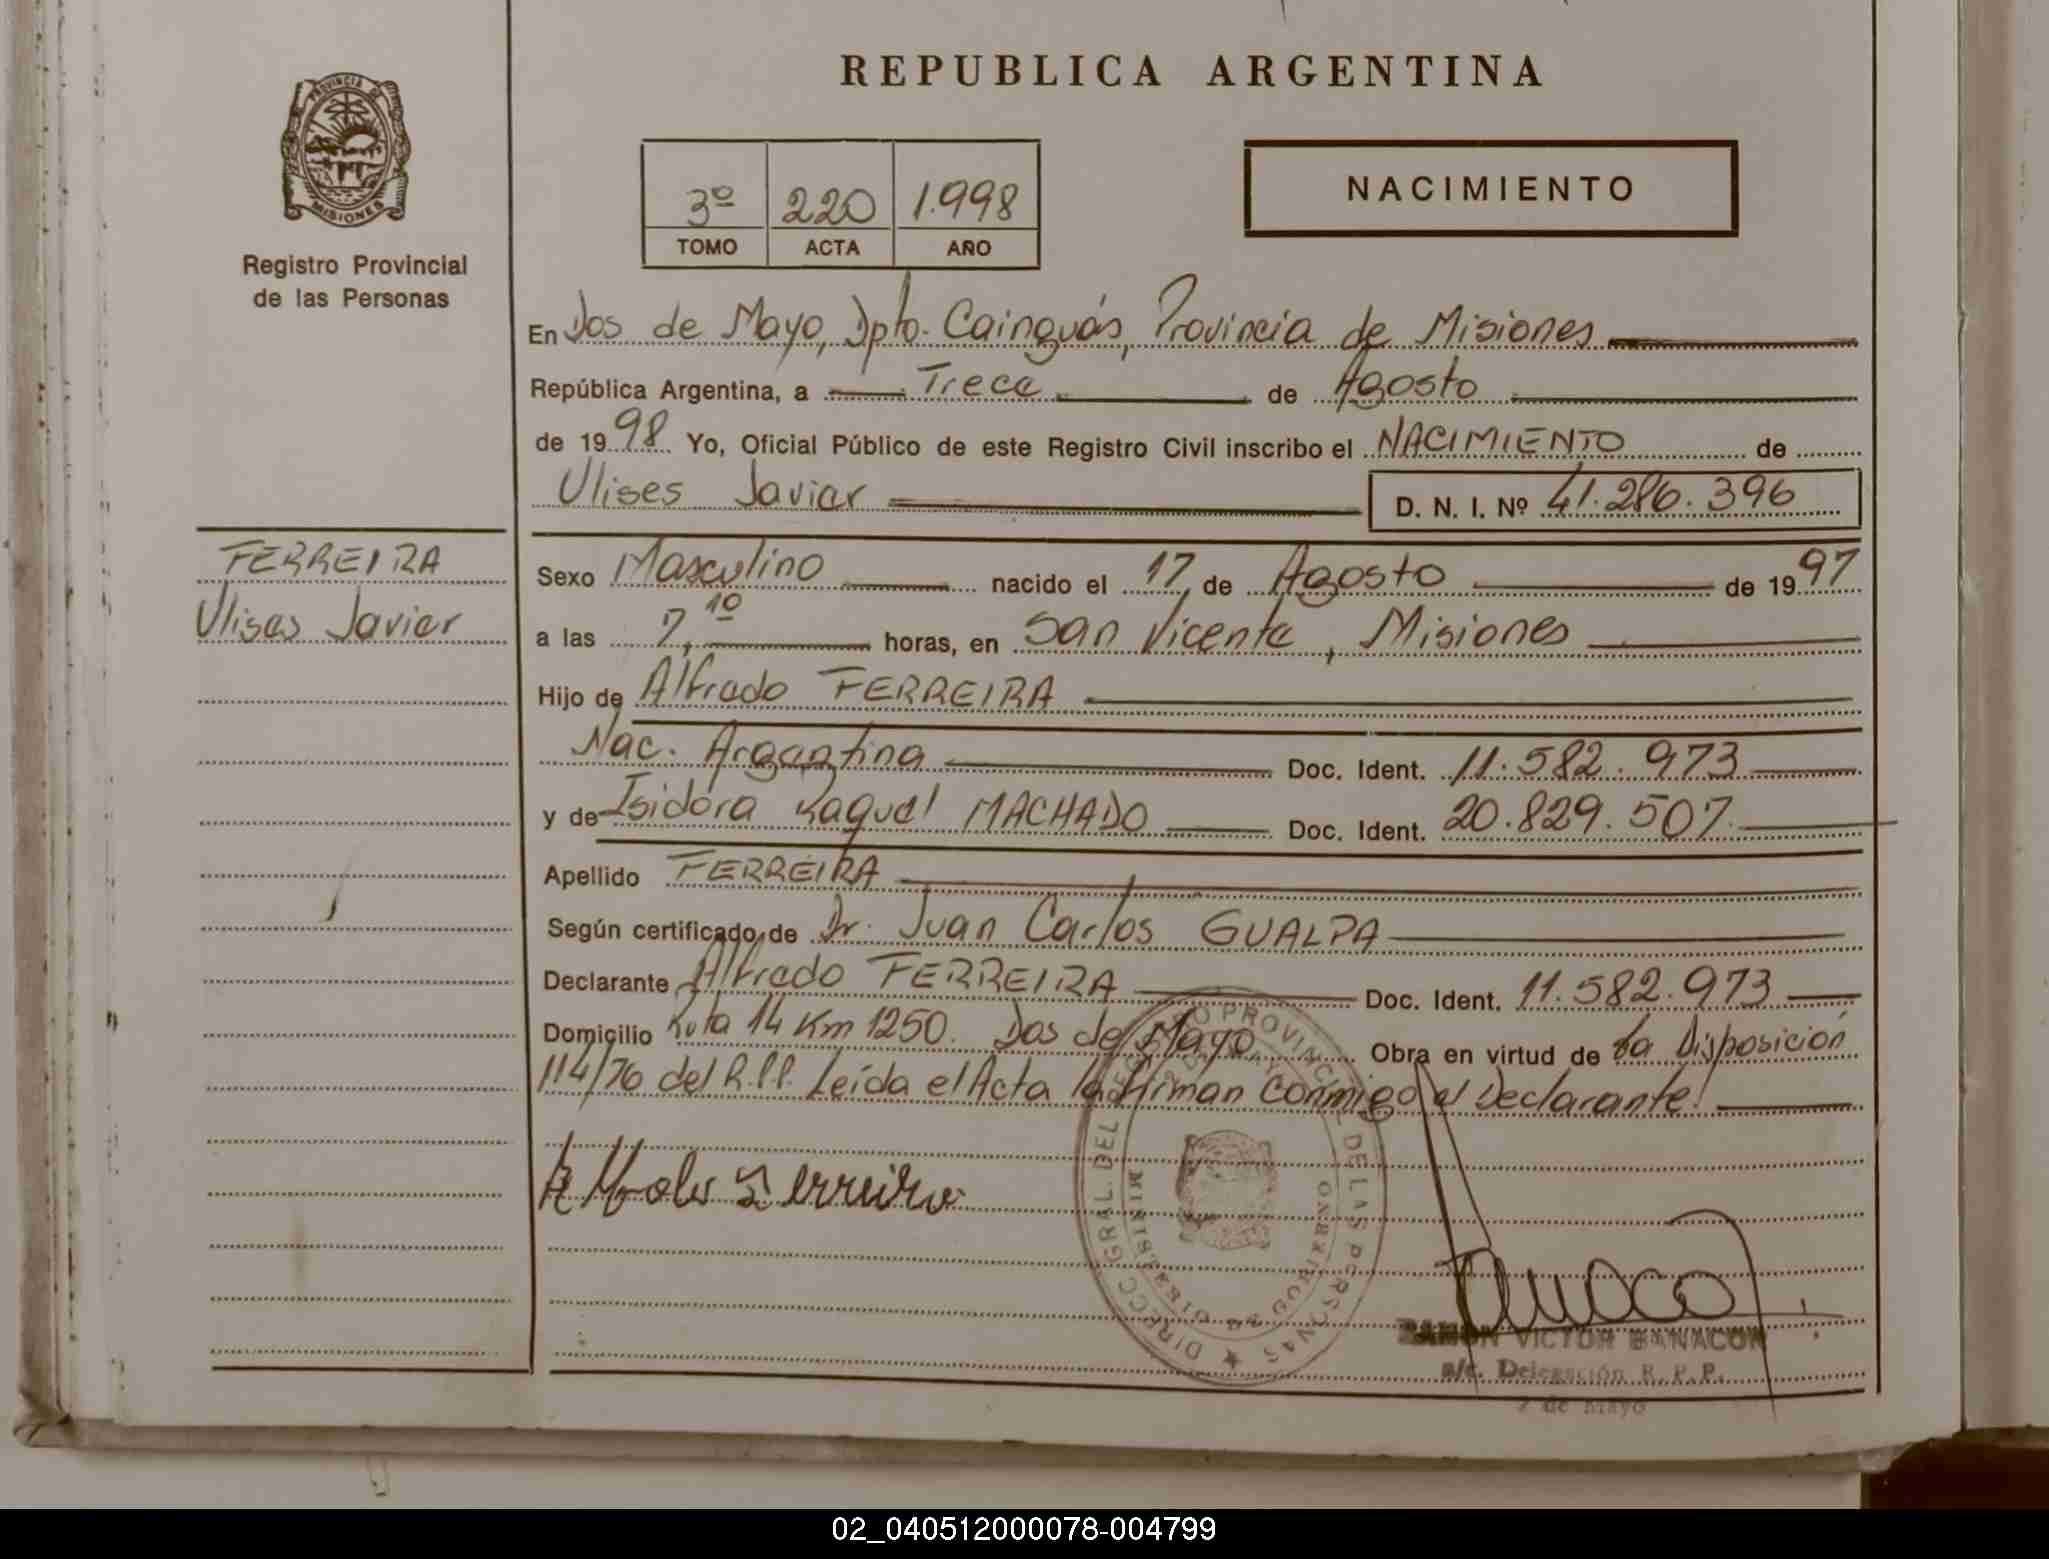 REPUBLICA ARGENTINA
PROVINCIA DE
MISIONES
Registro Provincial
de las Personas
3º 220 1.998
TOMO ACTA AÑO
NACIMIENTO
En Dos de Mayo, Dpto. Cainguás, Provincia de Misiones
República Argentina, a Trece de Agosto
de 1998 Yo, Oficial Público de este Registro Civil inscribo el NACIMIENTO de
Ulises Javier D. N. I. Nº 41.286.396
FERREIRA
Ulises Javier
Sexo Masculino nacido el 17 de Agosto de 1997
a las 7,10 horas, en San Vicente, Misiones
Hijo de Alfredo FERREIRA
Nac. Argentina Doc. Ident. 11.582.973
y de Isidora Raquel MACHADO Doc. Ident. 20.829.507
Apellido FERREIRA
Según certificado de Dr. Juan Carlos GUALPA
Declarante Alfredo FERREIRA Doc. Ident. 11.582.973
Domicilio Ruta 14 Km 1250. Dos de Mayo. Obra en virtud de la Disposición
114/76 del R.P.P. Leída el Acta la firman conmigo el Declarante!
DIRECC. GRAL. DEL REGISTRO PROVINCIAL DE LAS PERSONAS
MINISTERIO DE GOBIERNO
Ferreira
RAMON VICTOR BANACOR
a/c. Delegación R. P. P.
2 de Mayo
02_040512000078-004799